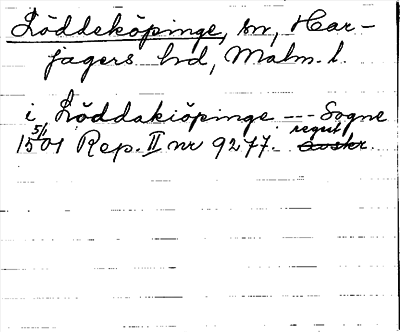 Löddeköpinge, sn, Har-
jagers hd, Malm. l.
i Löddakiöpinge --- Sogne
5/1 1501 Rep. II nr 9277. regist avskr.